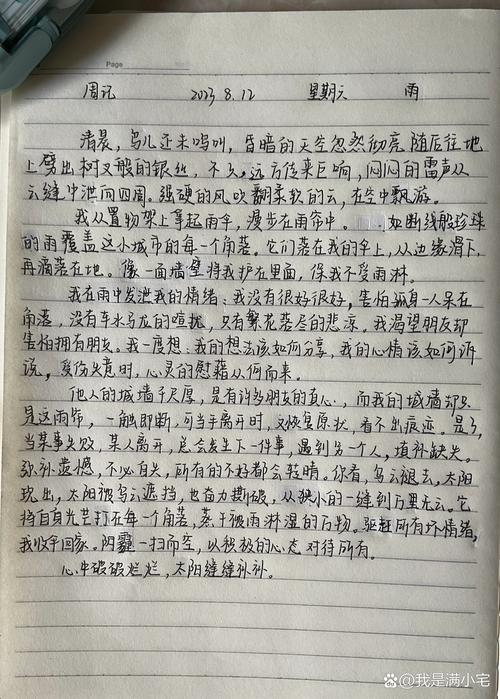 Page
周记 2023 8.12 星期六 雨
清晨，鸟儿还未鸣叫，昏暗的天空忽然彻亮随后往地
上劈出树叉般的银丝，不久，远方传来巨响，闷闷的雷声从
云缝中泄向四周。强硬的风吹翻柔软的云，在空中飘游。
我从置物架上拿起雨伞，漫步在雨帘中。如断线般珍珠
的雨覆盖这小城市的每一个角落。它们落在我的伞上，从边缘滑下，
再滴落在地。像一面墙壁将我护在里面，保我不受雨淋。
我在雨中发泄我的情绪，我没有很好很好，害怕孤身一人呆在
角落，没有车水马龙的喧扰，只有繁花落尽的悲凉。我渴望朋友却
害怕拥有朋友。我一度想：我的想法该如何分享，我的心情该如何诉
说，哀伤失意时，心灵的慰藉从何而来。
他人的城墙千尺厚，是有许多朋友的真心，而我的城墙却只
是这雨帘，一触即断，可当手离开时，又恢复原状，看不出痕迹。是了，
当某事失败，某人离开，总会发生下一件事，遇到另一个人，填补缺失。
弥补遗憾，不必自失，所有的不好都会转晴。你看，乌云褪去，太阳
现出，太阳被乌云遮挡，也奋力撕破，从狭小的一缝到万里无云。它
将自身光芒打在每一个角落，蒸干被雨淋湿的万物。驱赶所有坏情绪，
我收伞回家。阴霾一扫而空，以积极的心态对待所有。
心中破破烂烂，太阳缝缝补补。
百度@我是满小宅